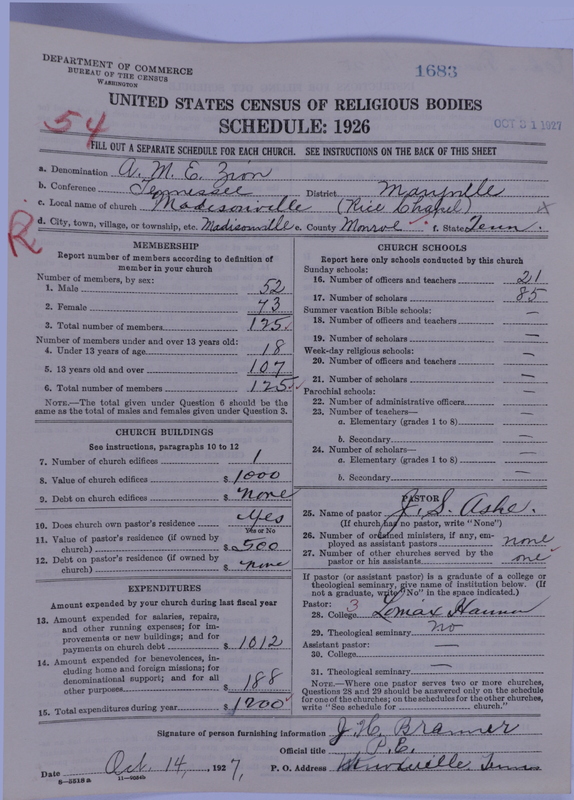 DEPARTMENT OF COMMERCE
BUREAU OF THE CENSUS
WASHINGTON
1683
UNITED STATES CENSUS OF RELIGIOUS BODIES
SCHEDULE: 1926
OCT 31 1927
54
FILL OUT A SEPARATE SCHEDULE FOR EACH CHURCH. SEE INSTRUCTIONS ON THE BACK OF THIS SHEET
a. Denomination A. M. E. Zion
b. Conference Tennessee District Maryville
c. Local name of church Madisonville (Rice Chapel) x
R
d. City, town, village, or township, etc. Madisonville e. County Monroe f. State Tenn.
MEMBERSHIP
Report number of members according to definition of
member in your church
Number of members, by sex:
1. Male 52
2. Female 73
3. Total number of members 125
Number of members under and over 13 years old:
4. Under 13 years of age 18
5. 13 years old and over 107
6. Total number of members 125
NOTE.—The total given under Question 6 should be the
same as the total of males and females given under Question 3.
CHURCH BUILDINGS
See instructions, paragraphs 10 to 12
7. Number of church edifices 1
8. Value of church edifices $ 1000
9. Debt on church edifices $ None
10. Does church own pastor's residence Yes
Yes or No
11. Value of pastor's residence (if owned by
church) $ 500
12. Debt on pastor's residence (if owned by
church) $ None
EXPENDITURES
Amount expended by your church during last fiscal year
13. Amount expended for salaries, repairs,
and other running expenses; for im-
provements or new buildings; and for
payments on church debt $ 1012
14. Amount expended for benevolences, in-
cluding home and foreign missions; for
denominational support; and for all
other purposes $ 188
15. Total expenditures during year $ 1200
CHURCH SCHOOLS
Report here only schools conducted by this church
Sunday schools:
16. Number of officers and teachers 21
17. Number of scholars 85
Summer vacation Bible schools:
18. Number of officers and teachers —
19. Number of scholars —
Week-day religious schools:
20. Number of officers and teachers —
21. Number of scholars —
Parochial schools:
22. Number of administrative officers —
23. Number of teachers—
a. Elementary (grades 1 to 8) —
b. Secondary —
24. Number of scholars—
a. Elementary (grades 1 to 8) —
b. Secondary —
PASTOR
25. Name of pastor J. S. Ashe.
(If church has no pastor, write "None")
26. Number of ordained ministers, if any, em-
ployed as assistant pastors none
27. Number of other churches served by the
pastor or his assistants one
If pastor (or assistant pastor) is a graduate of a college or
theological seminary, give name of institution below. (If
not a graduate, write "No" in the space indicated.)
Pastor: 3
28. College Lomax Hannon
29. Theological seminary No
Assistant pastor:
30. College —
31. Theological seminary —
NOTE.—Where one pastor serves two or more churches,
Questions 28 and 29 should be answered only on the schedule
for one of the churches; on the schedules for the other churches,
write "See schedule for church."
Signature of person furnishing information J. H.
Official title P. E.
Date Oct. 14, 1927, P. O. Address Knoxville, Tenn
8-5518 a